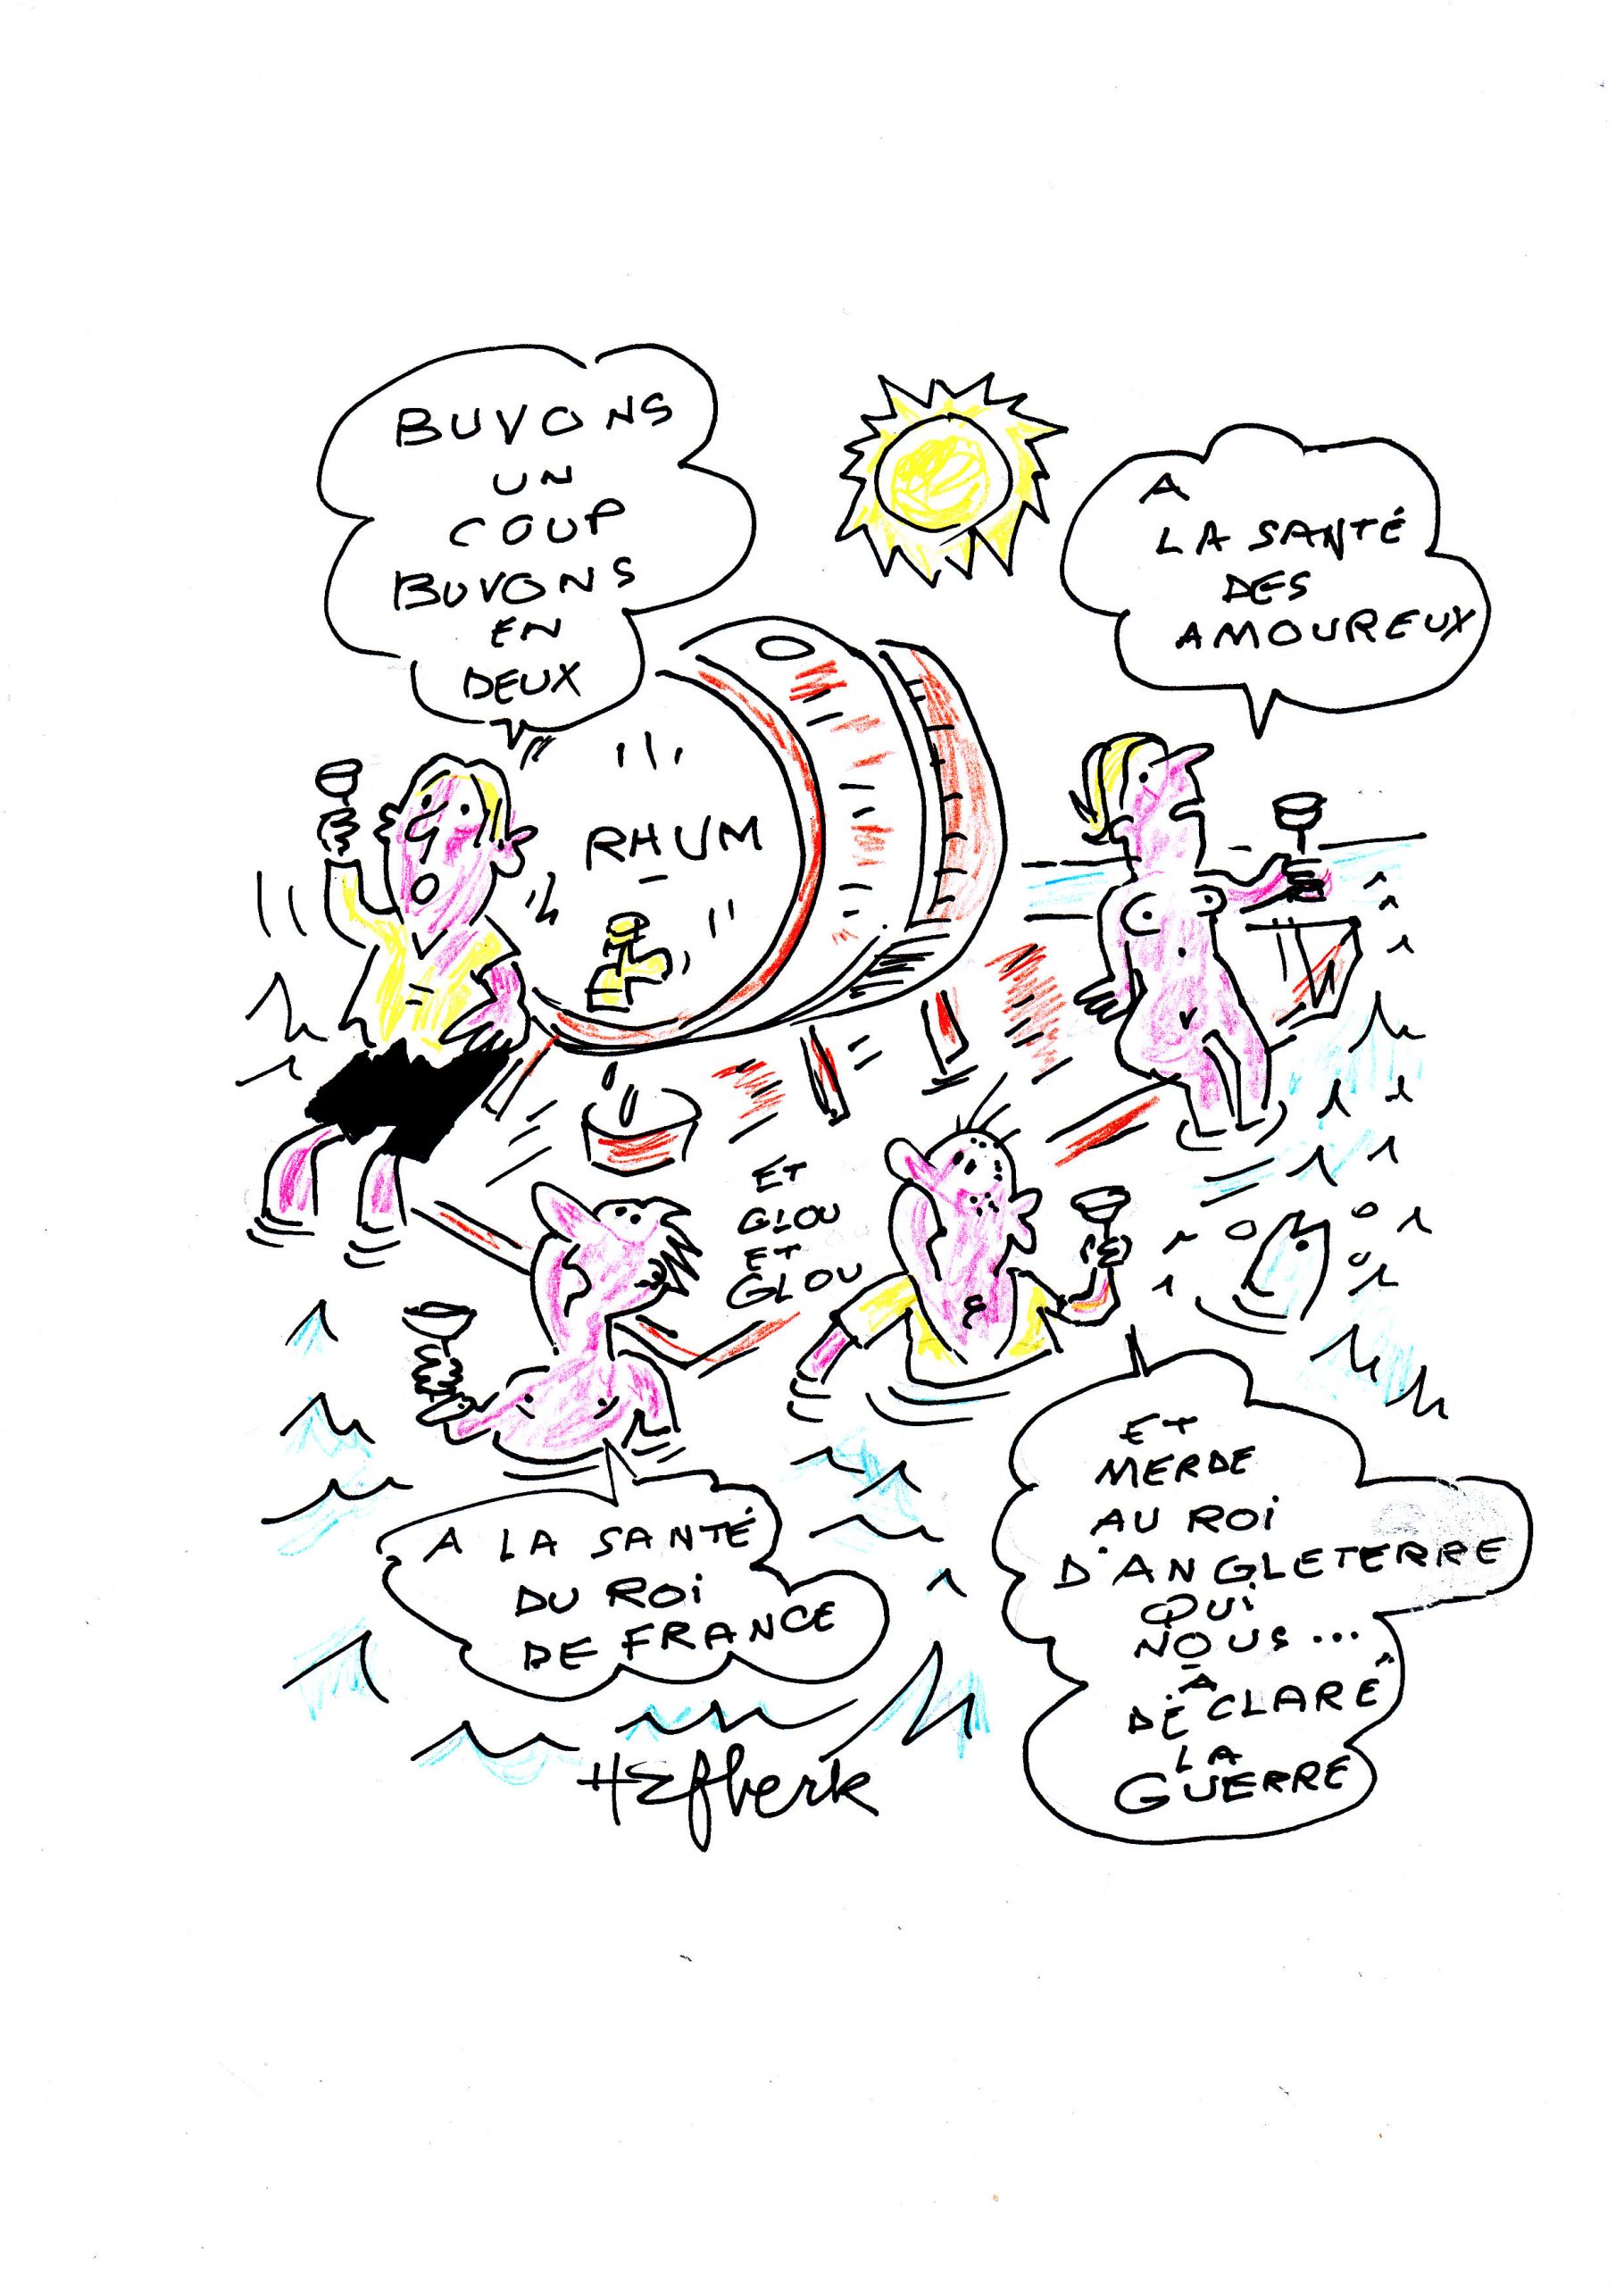 BUVONS
UN
COUP
BUVONS
EN
DEUX
A
LA SANTÉ
DES
AMOUREUX
RHUM
ET
GLOU
ET
GLOU
A LA SANTÉ
DU ROI
DE FRANCE
ET
MERDE
AU ROI
D'ANGLETERRE
QUI
NOUS...
A
DÉCLARÉ
LA
GUERRE
Hefberk